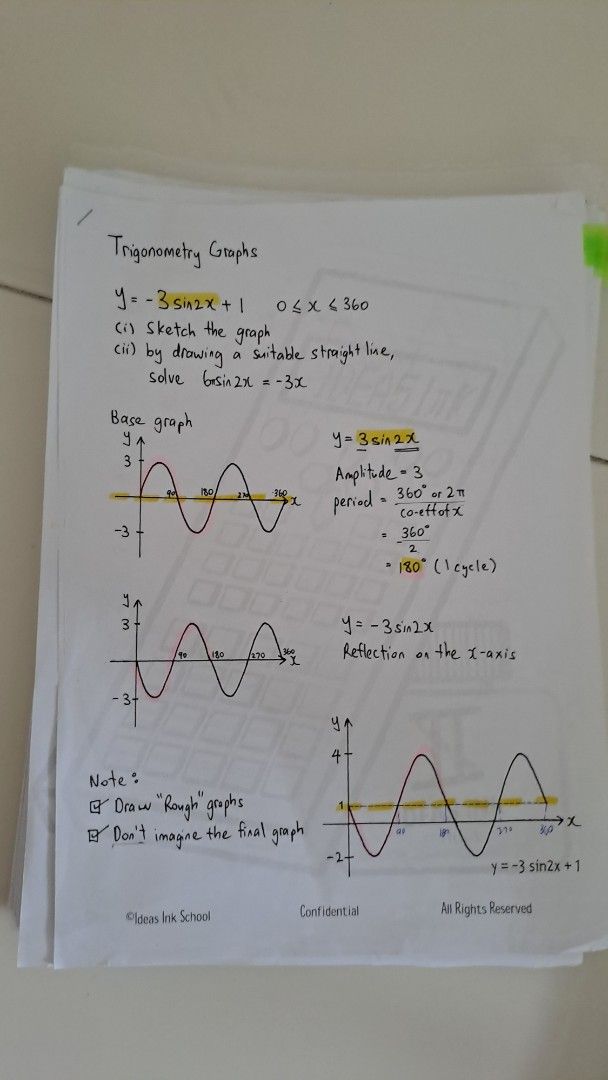 Trigonometry Graphs
y = -3 sin2x + 1 0 ≤ x ≤ 360
(i) Sketch the graph
(ii) by drawing a suitable straight line,
solve 6πsin2x = -3x
Base graph
y
3
90 180 270 360 x
-3
y = 3 sin 2x
Amplitude = 3
period = 360° or 2π
co-eff of x
= 360°
2
= 180° (1 cycle)
y
3
90 180 270 360 x
-3
y = -3 sin2x
Reflection on the x-axis
Note:
☑ Draw "Rough" graphs
☑ Don't imagine the final graph
y
4
1
90 180 270 360 x
-2
y = -3 sin2x + 1
©Ideas Ink School Confidential All Rights Reserved